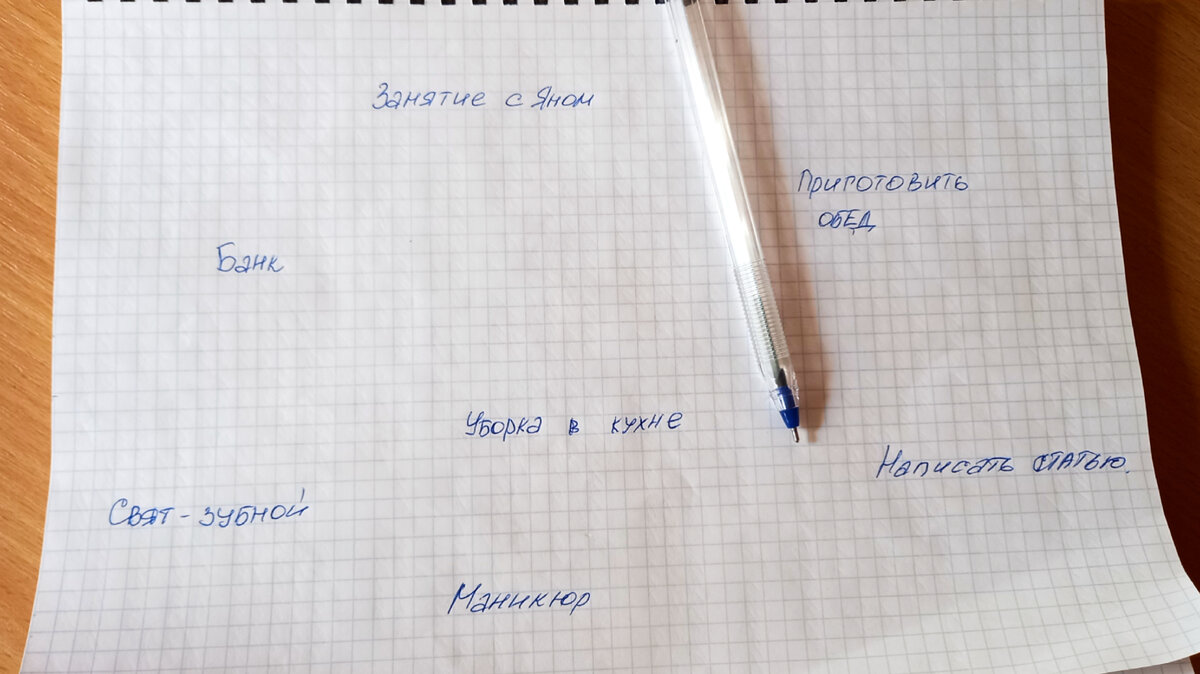 Занятие с Яном
Приготовить
ОБЕД
Банк
Уборка в кухне
Написать статью.
Свят - зубной
Маникюр